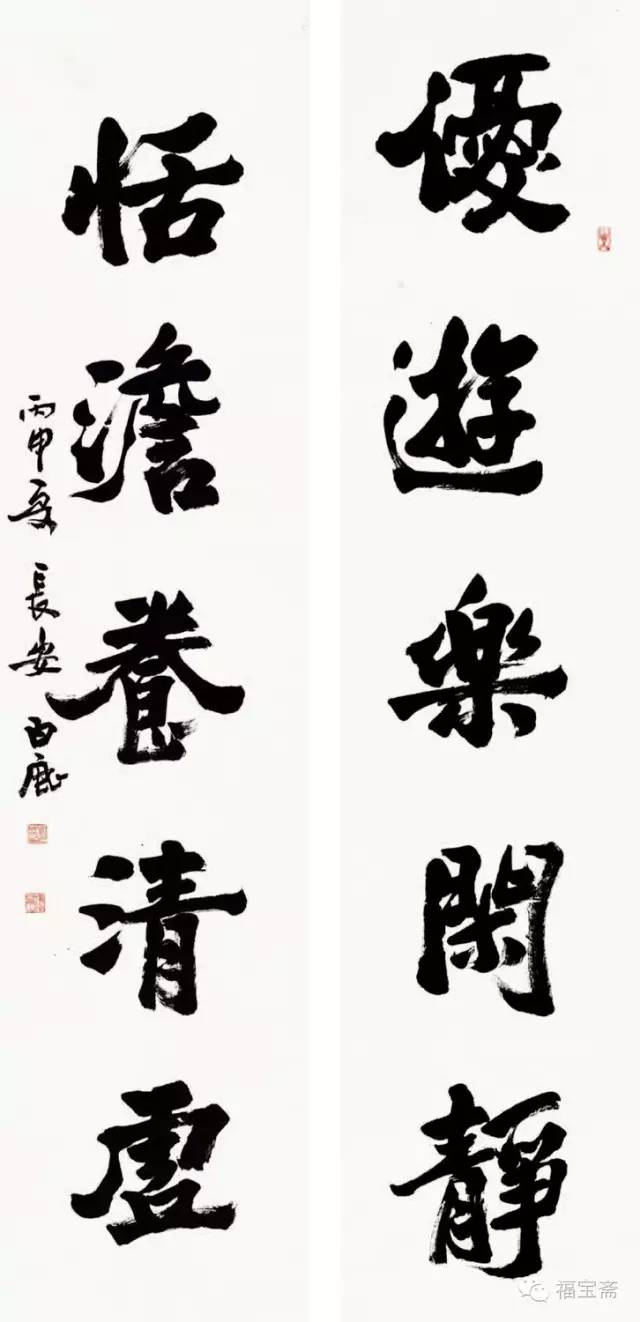 優遊樂閑靜
恬澹養清虛
丙申夏 長安 白鹿
福宝斋